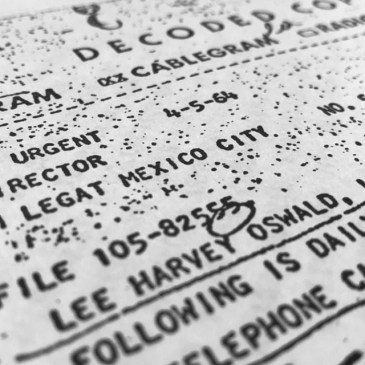 DECODED COP
RAM XX CABLEGRAM RADIO
4-5-64
URGENT NO.
RECTOR
LEGAT MEXICO CITY
FILE 105-82555
LEE HARVEY OSWALD,
FOLLOWING IS DAIL
TELEPHONE CA